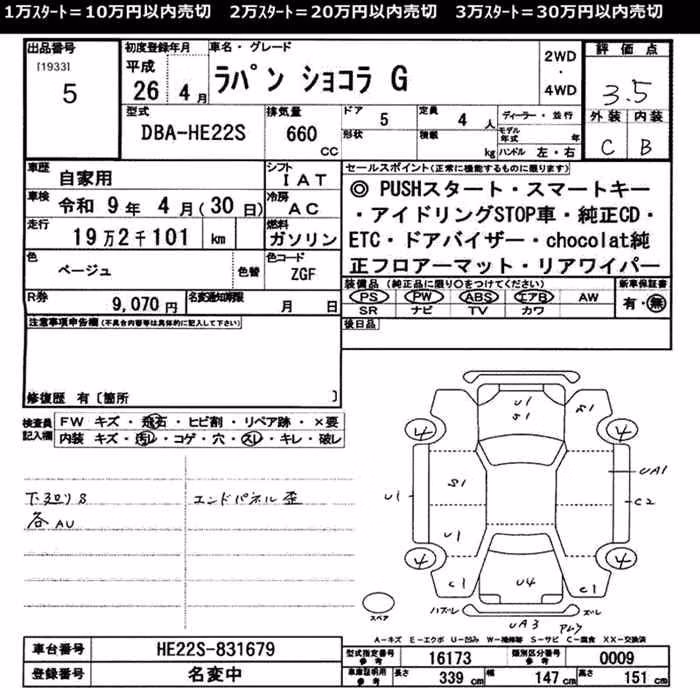 1万ｽﾀｰﾄ＝10万円以内売切　2万ｽﾀｰﾄ＝20万円以内売切　3万ｽﾀｰﾄ＝30万円以内売切
出品番号
[1933]
5
初度登録年月
平成
26 4 月
車名・グレード
ラパン ショコラ G
2WD
・
4WD
評価点
3.5
型式
DBA-HE22S
排気量
660
CC
ドア
5
定員
4 人
ディーラー・並行
形状
積載
kg
モデル年式
年
ハンドル 左・右
外装 内装
C B
車歴
自家用
シフト
IAT
車検
令和 9 年 4 月(30 日)
冷房
AC
走行
19 万 2 千 101 km
燃料
ガソリン
色
ベージュ
色替
色コード
ZGF
R券
9,070 円
名変通知期限
月 日
セールスポイント(正常に機能するものに限ります)
◎ PUSHスタート・スマートキー
・アイドリングSTOP車・純正CD・
ETC・ドアバイザー・chocolat純
正フロアーマット・リアワイパー
装備品 (純正品に限り○をつけてください)
PS PW ABS エアB AW
SR ナビ TV カワ
新車保証書
有・無
後日品
注意事項申告欄(不具合内容等は具体的に記入して下さい)
修復歴 有〔箇所 〕
検査員
記入欄
FW キズ・飛石・ヒビ割・リペア跡・×要
内装 キズ・汚レ・コゲ・穴・スレ・キレ・破レ
下廻りS
各AU
エンドパネル歪
U1
S1
S1
4
4
U1
S1
UA1
C2
U1
4
4
C1
U4
C1
ハズレ
ズレ
スペア
UA3
A-キズ E-エクボ U-凹み W-補修等 S-サビ C-腐食 XX-交換済
車台番号
HE22S-831679
登録番号
名変中
型式指定番号
参考
16173
類別区分番号
参考
0009
車庫証明用
参考
長さ
339 cm
幅
147 cm
高さ
151 cm